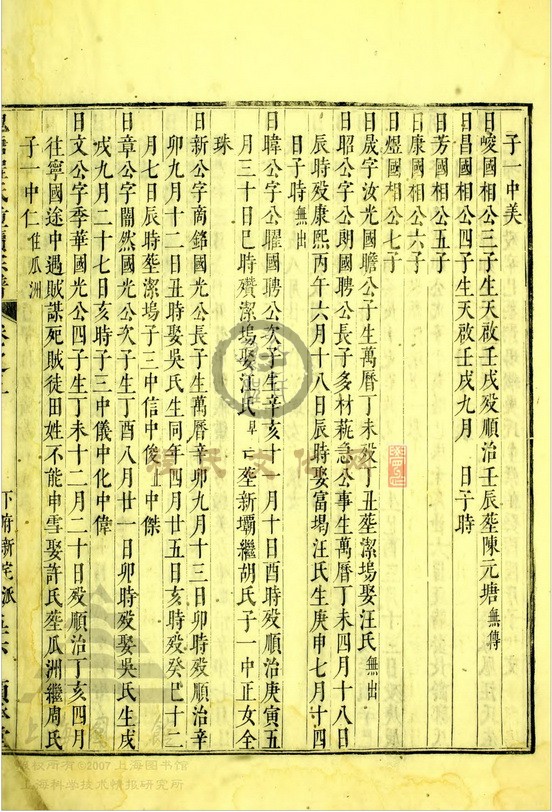 子一中美
日峻國相公三子生天啟壬戌歿順治壬辰塟陳元塘無傳
日昌國相公四子生天啟壬戌九月 日子時
日芳國相公五子
日康國相公六子
日煜國相公七子
日晟字汝光國瞻公子生萬曆丁未歿丁丑塟潔塢娶汪氏無出
日昭公字公朗國聘公長子多材藝急公事生萬曆丁未四月十八日
辰時歿康熙丙午六月十八日辰時娶富堨汪氏生庚申七月十四
日子時無出
日暐公字公曜國聘公次子生辛亥十 月十日酉時歿順治庚寅五
月三十日巳時殯潔塢娶汪氏早亡塟新壩繼胡氏子一中正女全
珠
日新公字商銘國光公長子生萬曆辛卯九月十三日卯時歿順治辛
卯九月十二日丑時娶吳氏生同年四月廿五日亥時歿癸巳十二
月七日辰時塟潔塢子三中信中俊中傑
日章公字闇然國光公次子生丁酉八月廿一日卯時歿娶吳氏生戌
戌九月二十七日亥時子三中儀中化中偉
日文公字季華國光公四子生丁未十二月二十日歿順治丁亥四月
往寧國途中遇賊謀死賊徒田姓不能申雪娶許氏塟瓜洲繼周氏
子一中仁住瓜洲
下府新屯派
版权所有©2007上海图书馆
上海科学技术情报研究所